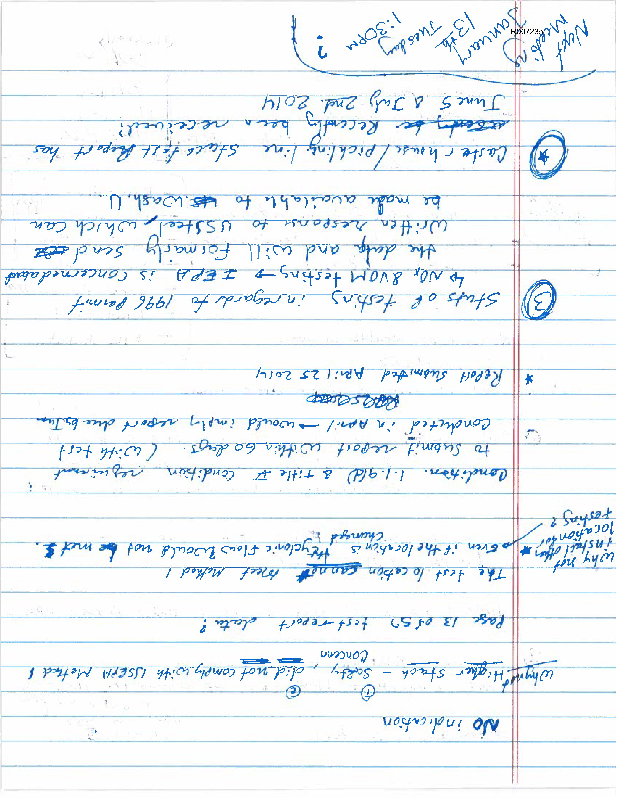 No indication
① ②
Why not Higher stack – Safety Concern, did not comply with USEPA Method 1
Page 13 of 57 test report data?
The test location cannot meet Method 1
→ even if the location is changed the cyclonic flow would not be met.
* Why not
install other
location for
testing?
Condition. 1.1.9(d) & Title V condition requirement
to submit report within 60 days. (with test
conducted in April → would imply report due by Jun
* Report submitted April 25 2014
③ Stuts of testing in regards to 1996 Permit
↳ NOx & VOM testing → IEPA is concerned about
the data and will formarily send
written response to USSteel, which can
be made available to Wash. U.
* Caster house/pickling line stack test Report has
Recently been received?
June 5 & July 2nd 2014
Next
Meeting
January
13th
Tuesday
1:30pm
?